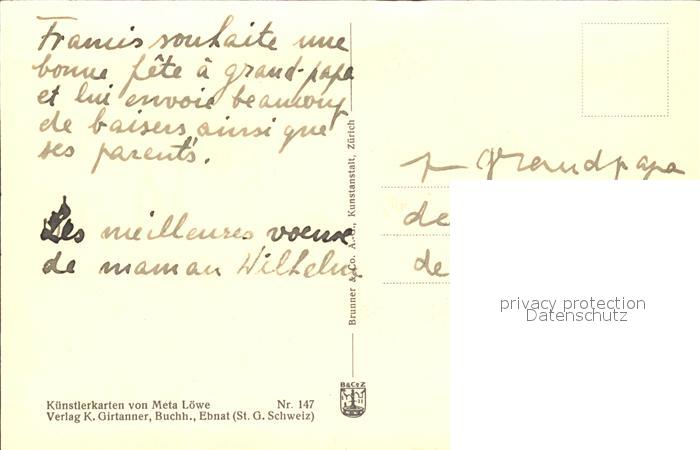 Francis souhaite une
bonne fête à grand-papa
et lui envoie beaucoup
de baisers ainsi que
ses parents.
Les meilleures voeux
de maman Wilhelm
Brunner & Co. A.-G., Kunstanstalt, Zürich
p Grandpapa
de
de
privacy protection
Datenschutz
B&CoZ
Künstlerkarten von Meta Löwe Nr. 147
Verlag K. Girtanner, Buchh., Ebnat (St. G. Schweiz)